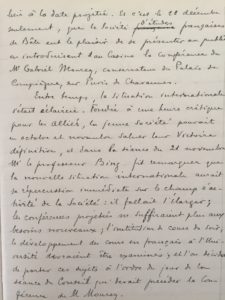 lieu à la date projetée. Et c'est le 18 décembre
seulement, que la Société d'études françaises
de Bâle eut le plaisir de se présenter au public
en introduisant au Casino la conférence de
Mr Gabriel Mourey, conservateur du Palais de
Compiègne, sur Puvis de Chavannes.
Entre temps, la situation internationale
s'était éclaircie. Fondée à une heure critique
pour les Alliés, la jeune Société pouvait
en octobre et novembre saluer leur Victoire
définitive, et dans la séance du 21 novembre
Mr le professeur Binz, fit remarquer que
la nouvelle situation internationale aurait
sa répercussion immédiate sur le champ d'ac-
tivité de la Société: il fallait l'élargir;
les conférences projetées ne suffiraient plus aux
besoins nouveaux; l'institution de cours du soir,
le développement des cours en français à l'Uni-
versité devraient être examinés; et l'on décida
de porter ces sujets à l'ordre du jour de la
séance du Conseil qui devait précéder la con-
férence de M. Mourey.